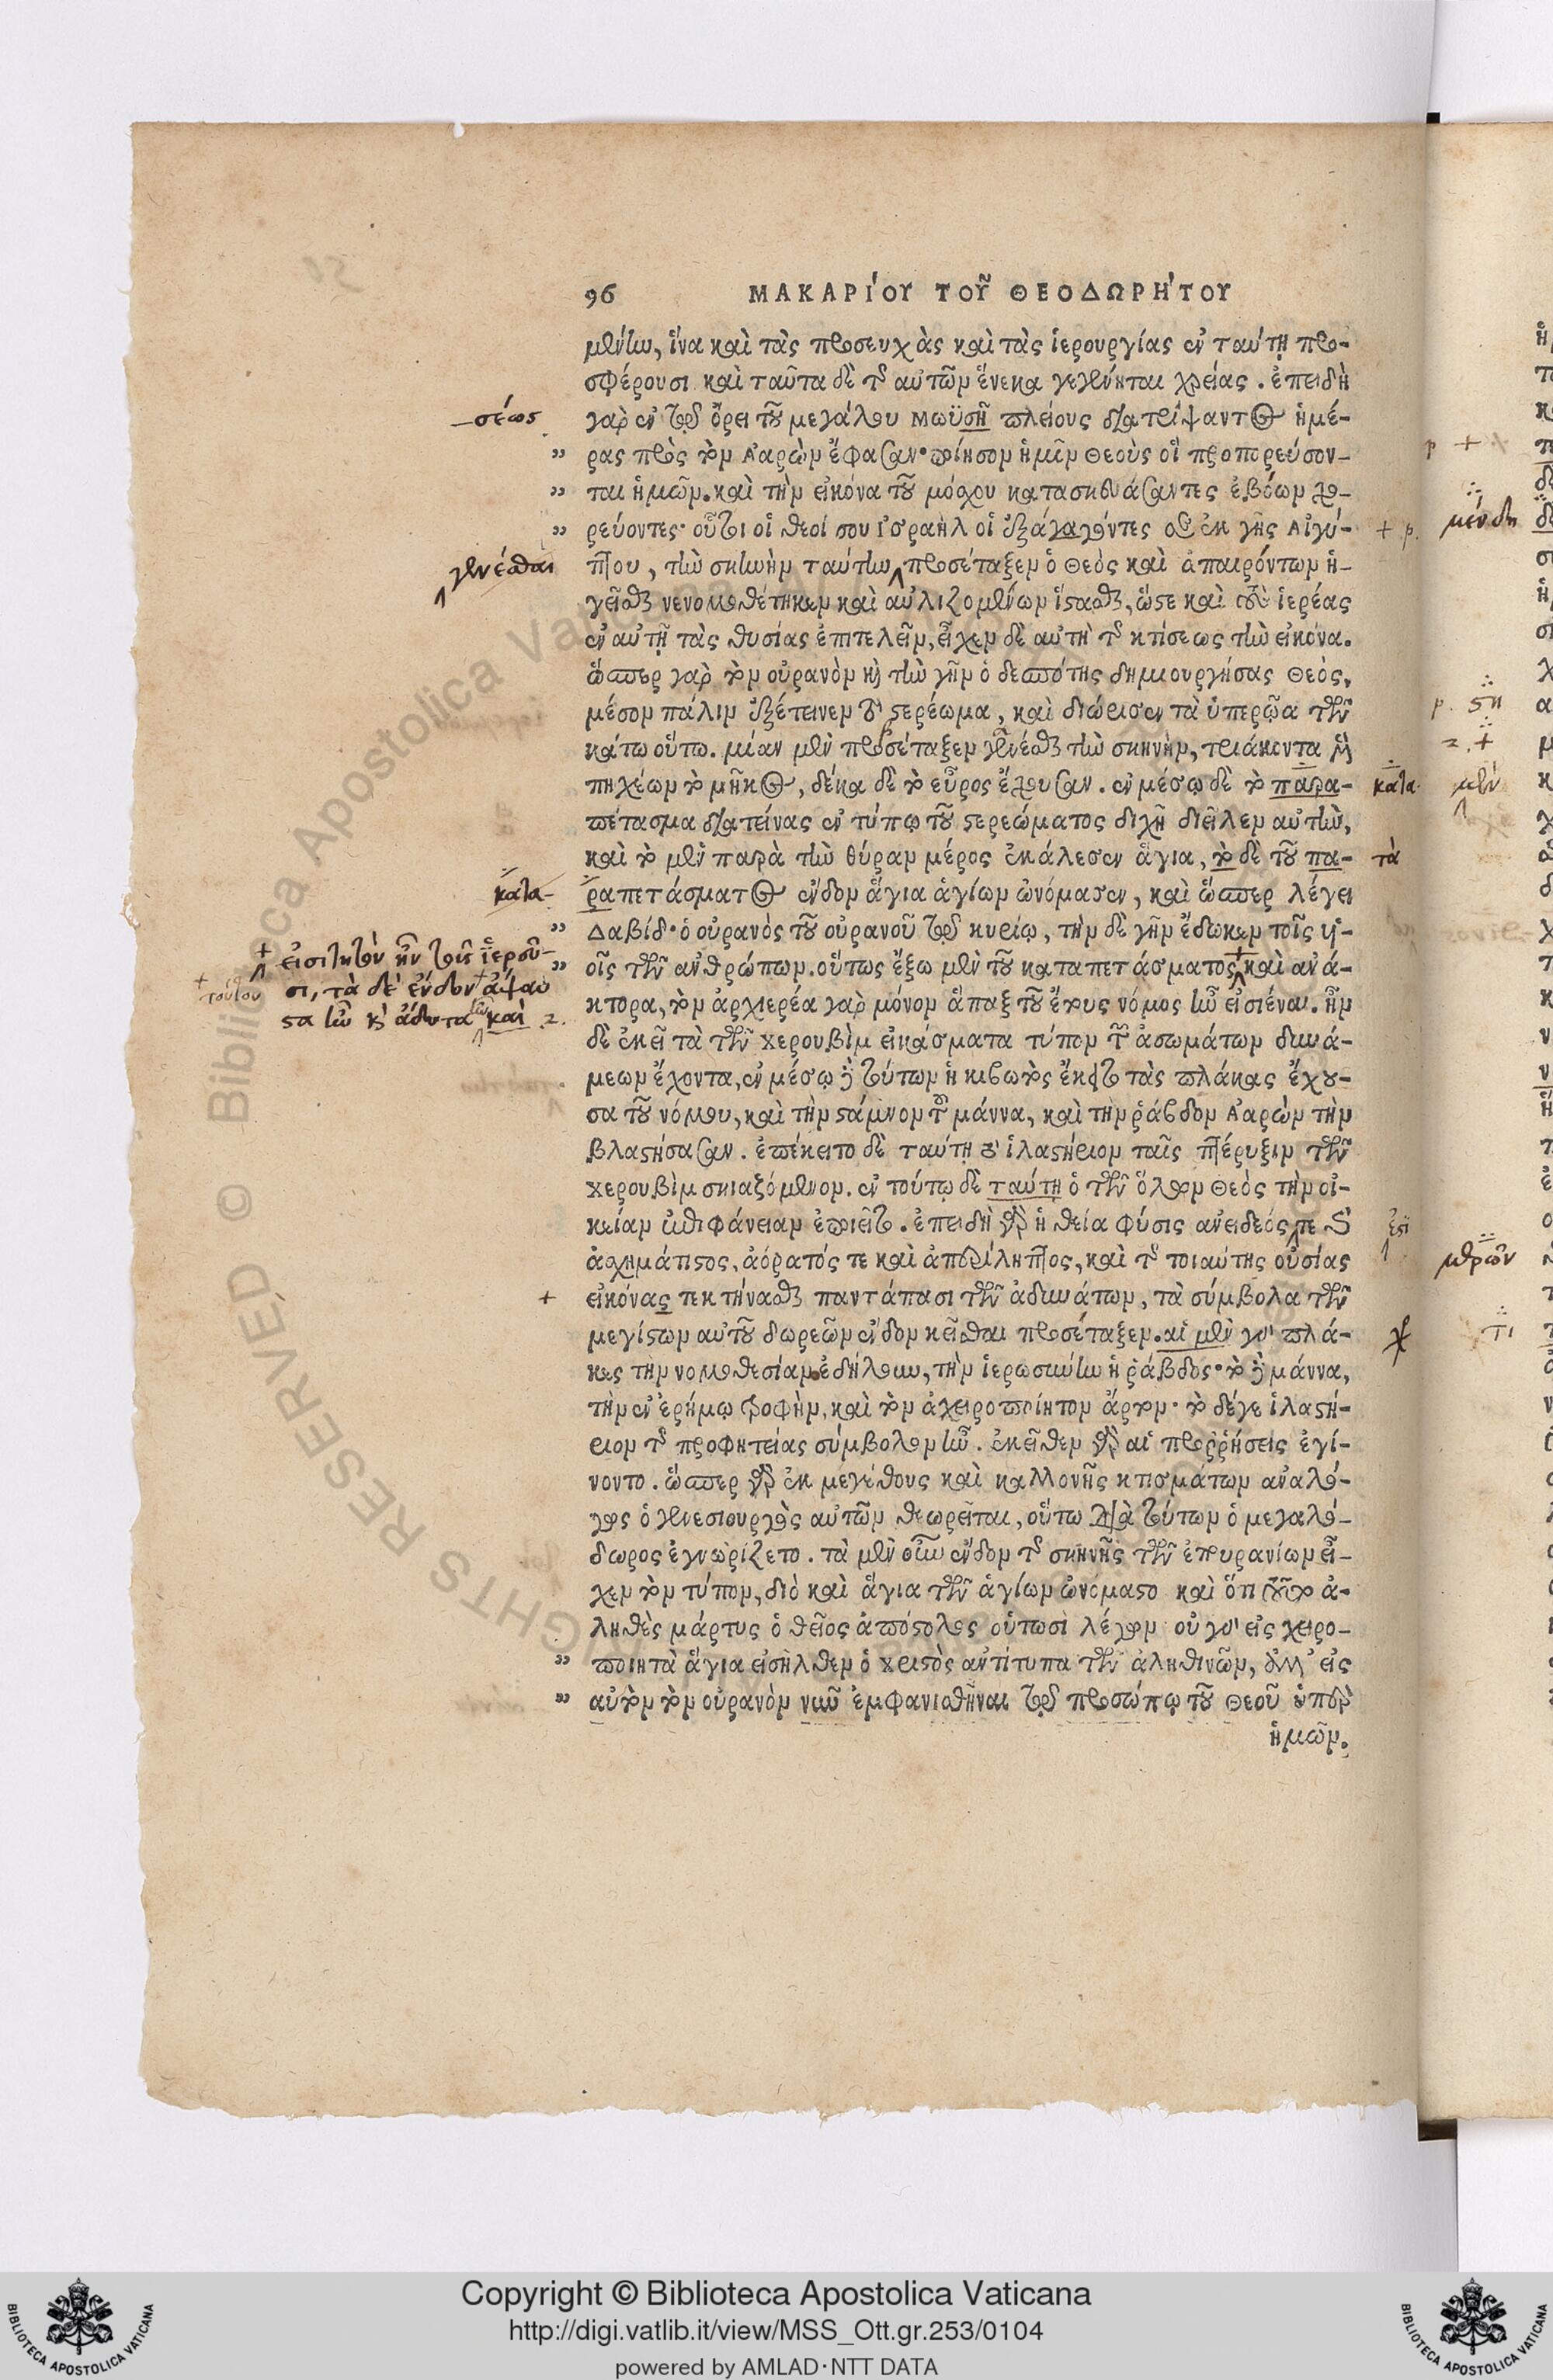 96 ΜΑΚΑΡΊΟΥ ΤΟΥ͂ ΘΕΟΔΩΡΉΤΟΥ
μένην, ἵνα καὶ τὰς προσευχὰς καὶ τὰς ἱερουργίας ἐν ταύτῃ προ-
σφέρουσι καὶ ταῦτα δὲ τῆς αὐτῶν ἕνεκα γεγένηται χρείας. ἐπειδὴ
γὰρ ἐν τῷ ὄρει τοῦ μεγάλου Μωϋσῆ πλείους διατρίψαντος ἡμέ-
ρας πρὸς τὸν Ἀαρὼν ἔφασαν· ποίησον ἡμῖν Θεοὺς οἳ προπορεύσον-
ται ἡμῶν. καὶ τὴν εἰκόνα τοῦ μόσχου κατασκευάσαντες ἐβόων χο-
ρεύοντες· οὗτοι οἱ θεοί σου Ἰσραὴλ οἱ ἐξαγαγόντες σε ἐκ γῆς Αἰγύ-
πτου, τὴν σκηνὴν ταύτην προσέταξεν ὁ Θεὸς καὶ ἀπαιρόντων ἡ-
γεῖσθαι νενομοθέτηκεν καὶ αὐλιζομένων ἵστασθαι, ὥστε καὶ τοὺς ἱερέας
ἐν αὐτῇ τὰς θυσίας ἐπιτελεῖν, εἶχεν δὲ αὐτὴ τῆς κτίσεως τὴν εἰκόνα.
ὥσπερ γὰρ τὸν οὐρανὸν καὶ τὴν γῆν ὁ δεσπότης δημιουργήσας Θεὸς,
μέσον πάλιν ἐξέτεινεν τὸ στερέωμα, καὶ διώρισεν τὰ ὑπερῷα τῶν
κάτω οὕτω. μίαν μὲν προσέταξεν γενέσθαι τὴν σκηνὴν, τριάκοντα μὲν
πηχέων τὸ μῆκος, δέκα δὲ τὸ εὖρος ἔχουσαν. ἐν μέσῳ δὲ τὸ παρα-
πέτασμα διατείνας ἐν τύπῳ τοῦ στερεώματος διχῆ διεῖλεν αὐτὴν,
καὶ τὸ μὲν παρὰ τὴν θύραν μέρος ἐκάλεσεν ἅγια, τὸ δὲ τοῦ πα-
ραπετάσματος ἔνδον ἅγια ἁγίων ὠνόμασεν, καὶ ὥσπερ λέγει
Δαβίδ· ὁ οὐρανὸς τοῦ οὐρανοῦ τῷ κυρίῳ, τὴν δὲ γῆν ἔδωκεν τοῖς υἱ-
οῖς τῶν ἀνθρώπων. οὕτως ἔξω μὲν τοῦ καταπετάσματος καὶ ἀνά-
κτορα, τὸν ἀρχιερέα γὰρ μόνον ἅπαξ τοῦ ἔτους νόμος ἦν εἰσιέναι. ἦν
δὲ ἐκεῖ τὰ τῶν Χερουβὶμ εἰκάσματα τύπον τῶν ἀσωμάτων δυνά-
μεων ἔχοντα, ἐν μέσῳ δὲ τούτων ἡ κιβωτὸς ἔκειτο τὰς πλάκας ἔχου-
σα τοῦ νόμου, καὶ τὴν στάμνον τοῦ μάννα, καὶ τὴν ῥάβδον Ἀαρὼν τὴν
βλαστήσασαν. ἐπέκειτο δὲ ταύτῃ τὸ ἱλαστήριον ταῖς πτέρυξιν τῶν
Χερουβὶμ σκιαζόμενον. ἐν τούτῳ δὲ ταύτῃ ὁ τῶν ὅλων Θεὸς τὴν οἰ-
κείαν ἐπιφάνειαν ἐποιεῖτο. ἐπειδὴ γὰρ ἡ θεία φύσις ἀνειδεός τε καὶ
ἀσχημάτιστος, ἀόρατός τε καὶ ἀπερίληπτος, καὶ τῆς τοιαύτης οὐσίας
εἰκόνας τεκτήνασθαι παντάπασι τῶν ἀδυνάτων, τὰ σύμβολα τῶν
μεγίστων αὐτοῦ δωρεῶν ἔνδον κεῖσθαι προσέταξεν. αἱ μὲν γὰρ πλά-
κες τὴν νομοθεσίαν ἐδήλουν, τὴν ἱερωσύνην ἡ ῥάβδος· τὸ δὲ μάννα,
τὴν ἐν ἐρήμῳ τροφὴν, καὶ τὸν ἀχειροποίητον ἄρτον· τὸ δέγε ἱλαστή-
ριον τῆς προφητείας σύμβολον ἦν. ἐκεῖθεν γὰρ αἱ προῤῥήσεις ἐγί-
νοντο. ὥσπερ γὰρ ἐκ μεγέθους καὶ καλλονῆς κτισμάτων ἀναλό-
γως ὁ γενεσιουργὸς αὐτῶν θεωρεῖται, οὕτω διὰ τούτων ὁ μεγαλό-
δωρος ἐγνωρίζετο. τὰ μὲν οὖν ἔνδον τῆς σκηνῆς τῶν ἐπουρανίων εἶ-
χεν τὸν τύπον, διὸ καὶ ἅγια τῶν ἁγίων ὠνόμαστο καὶ ὅτι τοῦτο ἀ-
ληθὲς μάρτυς ὁ θεῖος ἀπόστολος οὑτωσὶ λέγων οὐ γὰρ εἰς χειρο-
ποιητὰ ἅγια εἰσῆλθεν ὁ Χριστὸς ἀντίτυπα τῶν ἀληθινῶν, ἀλλ᾽ εἰς
αὐτὸν τὸν οὐρανὸν νῦν ἐμφανισθῆναι τῷ προσώπῳ τοῦ Θεοῦ ὑπὲρ
ἡμῶν.
-σέως
γενέσθαι
κατα-
εἰσιτητὸν ἦν τοῖς ἱεροῦ-
σι, τὰ δὲ ἔνδον ἄψαυ
στα ἦν κ̀ ἄδυτα καὶ 2.
τούτου
κατα
τὰ
ἐστι
μένδη
p. 5η
2. +
μὲν
τι
© Biblioteca Apostolica Vaticana
RIGHTS RESERVED
Copyright © Biblioteca Apostolica Vaticana
http://digi.vatlib.it/view/MSS_Ott.gr.253/0104
powered by AMLAD·NTT DATA
BIBLIOTECA APOSTOLICA VATICANA
BIBLIOTECA APOSTOLICA VATICANA